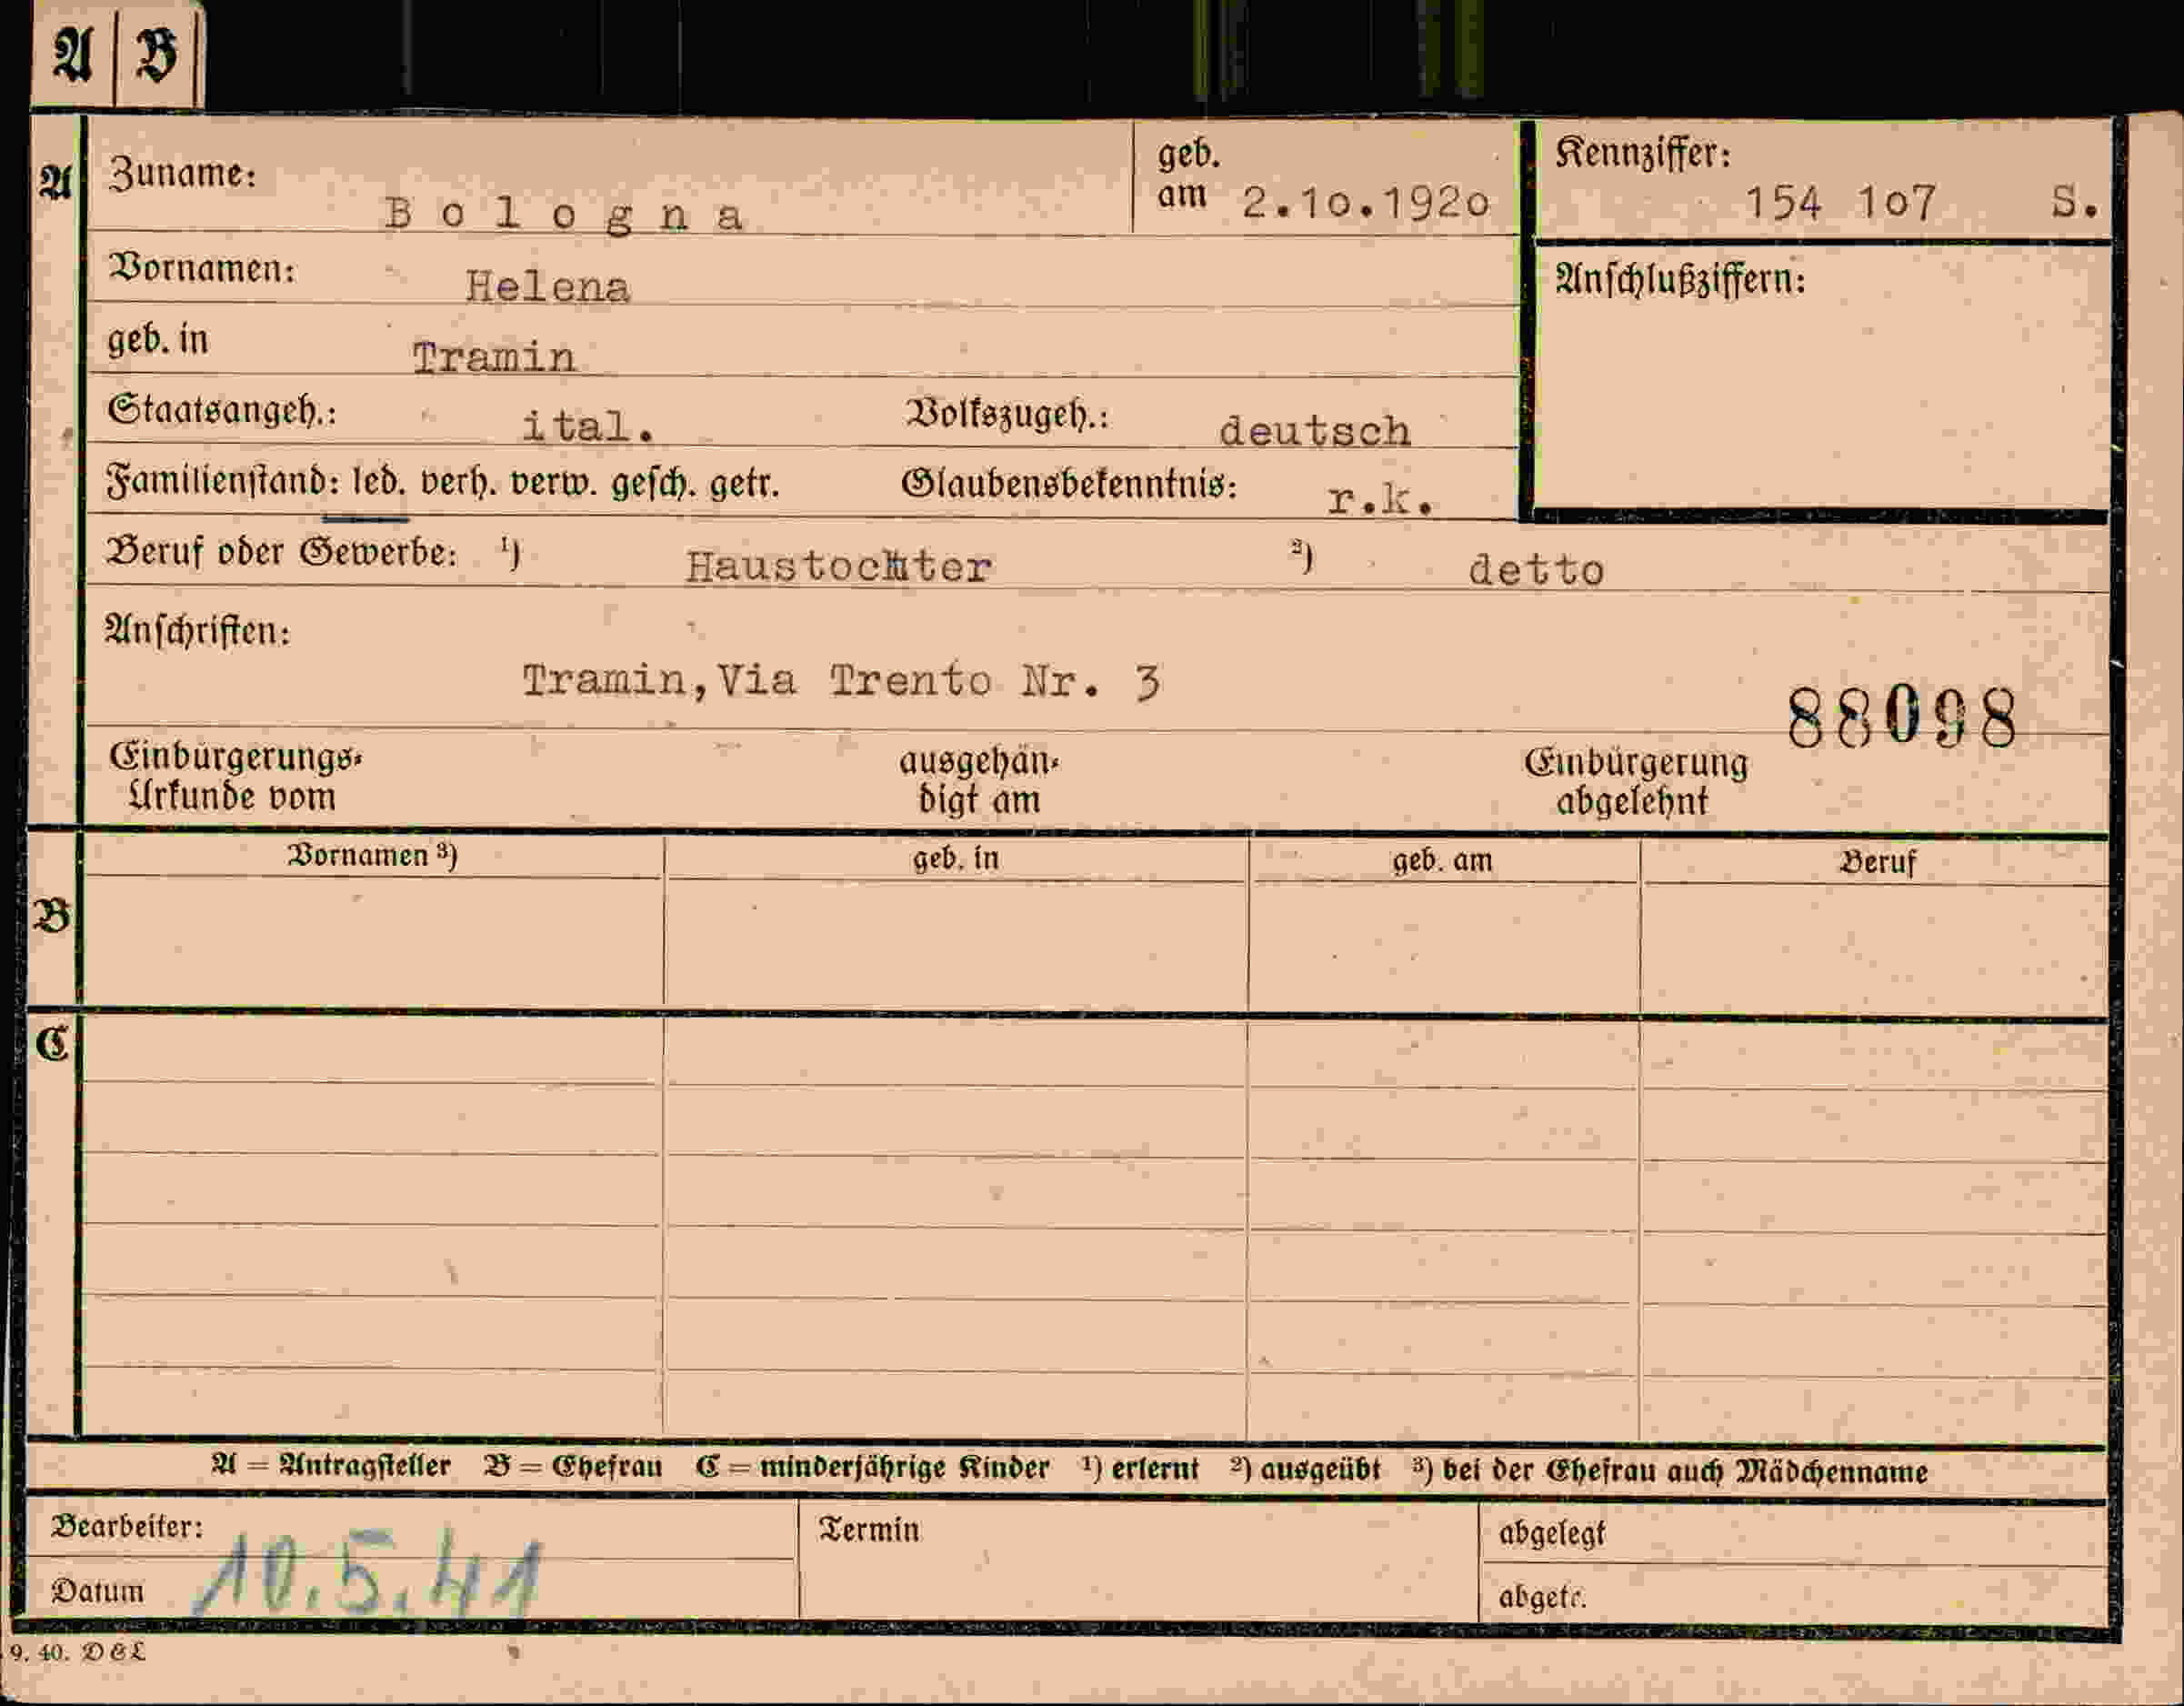 A | B
A Zuname: Bologna geb. am 2.1o.192o Kennziffer: 154 1o7 S.
Vornamen: Helena Anschlußziffern:
geb. in Tramin
Staatsangeh.: ital. Volkszugeh.: deutsch
Familienstand: led. verh. verw. gesch. getr. Glaubensbekenntnis: r.k.
Beruf oder Gewerbe: ¹) Haustochter ²) detto
Anschriften:
Tramin, Via Trento Nr. 3
88098
Einbürgerungs- ausgehän- Einbürgerung
Urkunde vom digt am abgelehnt
Vornamen ³) geb. in geb. am Beruf
B
C
A = Antragsteller B = Ehefrau C = minderjährige Kinder ¹) erlernt ²) ausgeübt ³) bei der Ehefrau auch Mädchenname
Bearbeiter: Termin abgelegt
Datum 10.5.41 abgetr.
9. 40. DEL